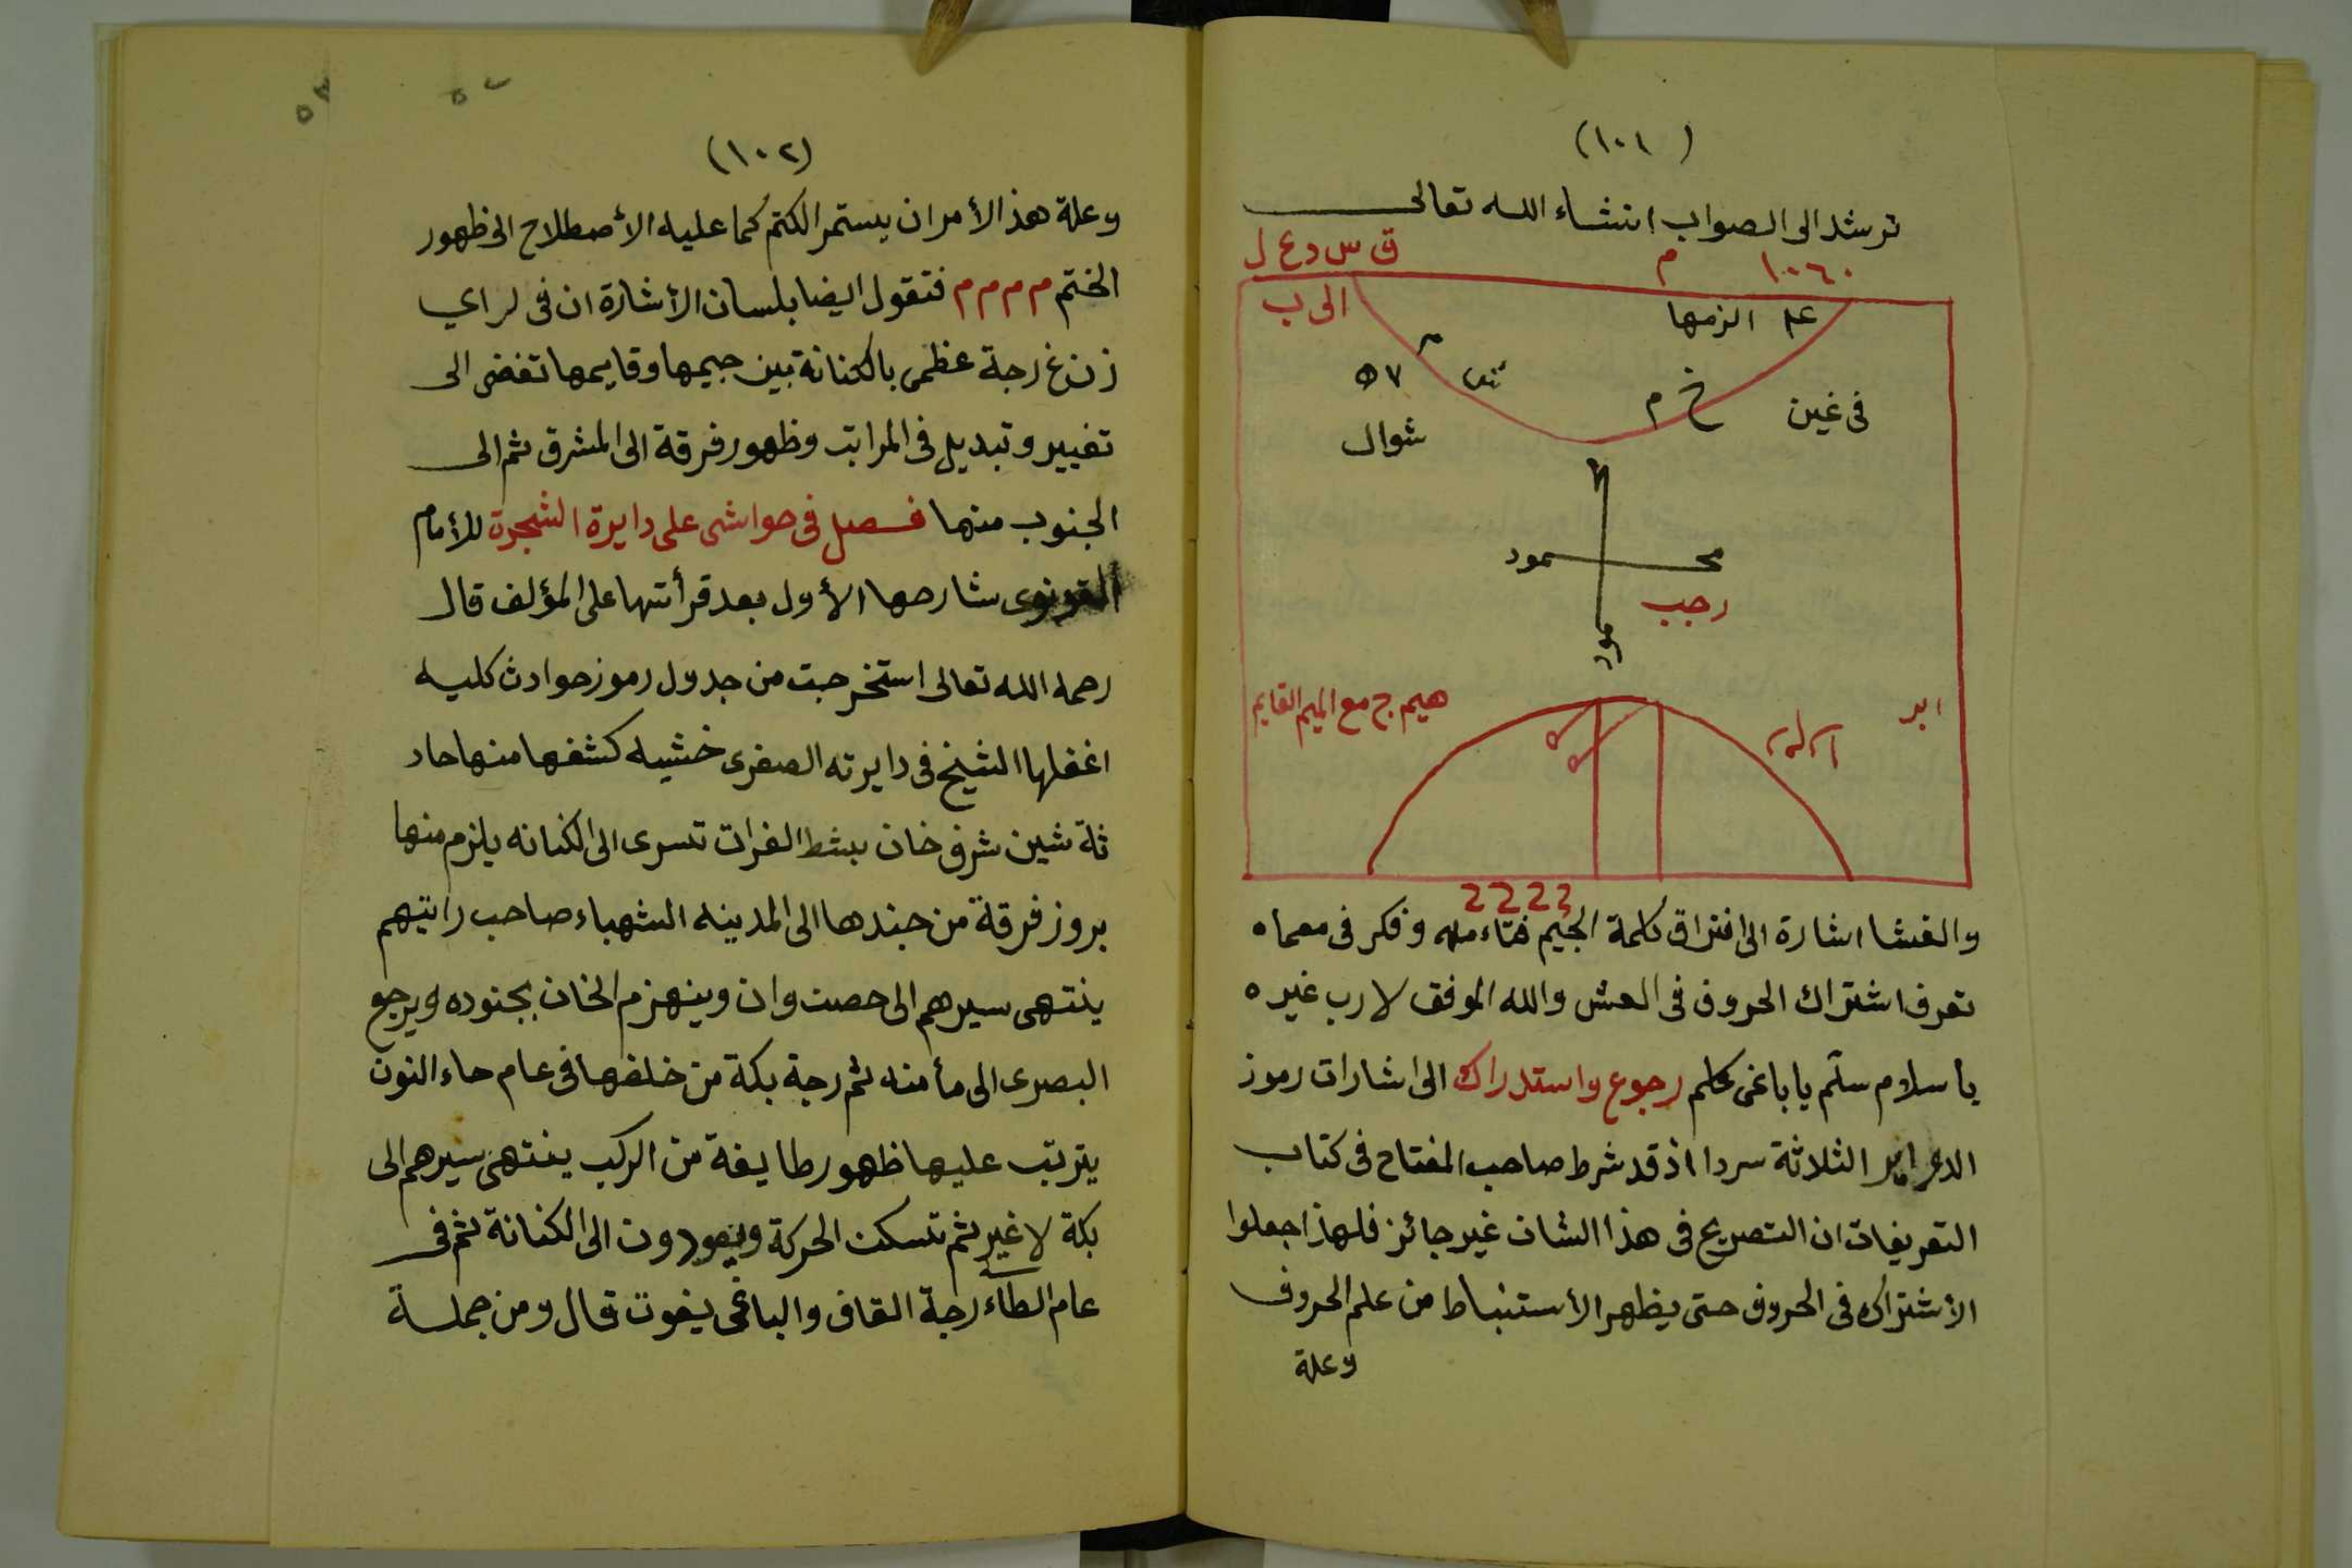 (١٠١)
ترشد الى الصواب انشاء الله تعالى
١٠٦٠ م ق س د ع ل
الى ب
الزمها
م
خ م
في غين
٥٧
شوال
محمود
رجب
ابر
هيم ج مع الميم القايم
والفشا اشارة الى افتراق كلمة الجيم وفكر في معماه
تعرف اشتراك الحروف في العش والله الموفق لا رب غيره
يا سلام سلّم يا باغي رجوع واستدراك الى اشارات رموز
الثلاثة سردا اذ قد شرط صاحب المفتاح في كتاب
التعريفات ان التصريح في هذا الشان غير جائز فلهذا جعلوا
الأشتراك في الحروف حتى يظهر الأستنباط من علم الحروف
وعلة
(١٠٢)
وعلة هذ الأمر ان يستمر الكتم كما عليه الأصطلاح الى ظهور
الختم م م م م فتقول ايضا بلسان الأشارة ان في لراي
ز ن غ رجة عظمى بالكنانة بين جيمها وقايمها تفضى الى
تغيير وتبديل في المراتب وظهور فرقة الى المشرق ثم الى
الجنوب منها فصل في حواشى على دايرة الشجرة للأمام
القونوى شارحها الأول بعد قرأتها على المؤلف قال
رحمه الله تعالى استخرجت من جدول رموز حوادث كليه
اغفلها الشيخ في دايرته الصغرى خشيه كشفها منها حاد
ثة شين شرف خان بشط الفرات تسرى الى الكنانه يلزم منها
بروز فرقة من جندها الى المدينه الشهباء صاحب رايتهم
ينتهى سيرهم الى حصت وان وينهزم الخان بجنوده ويرجع
البصرى الى مأمنه ثم رجة بكة من خلفها في عام حاء النون
يترتب عليها ظهور طايفة من الركب ينتهى سيرهم الى
بكة لا غير ثم تسكن الحركة ويعودون الى الكنانة ثم في
عام الطاء رجة القاف والباغى يفوت قال ومن جملة